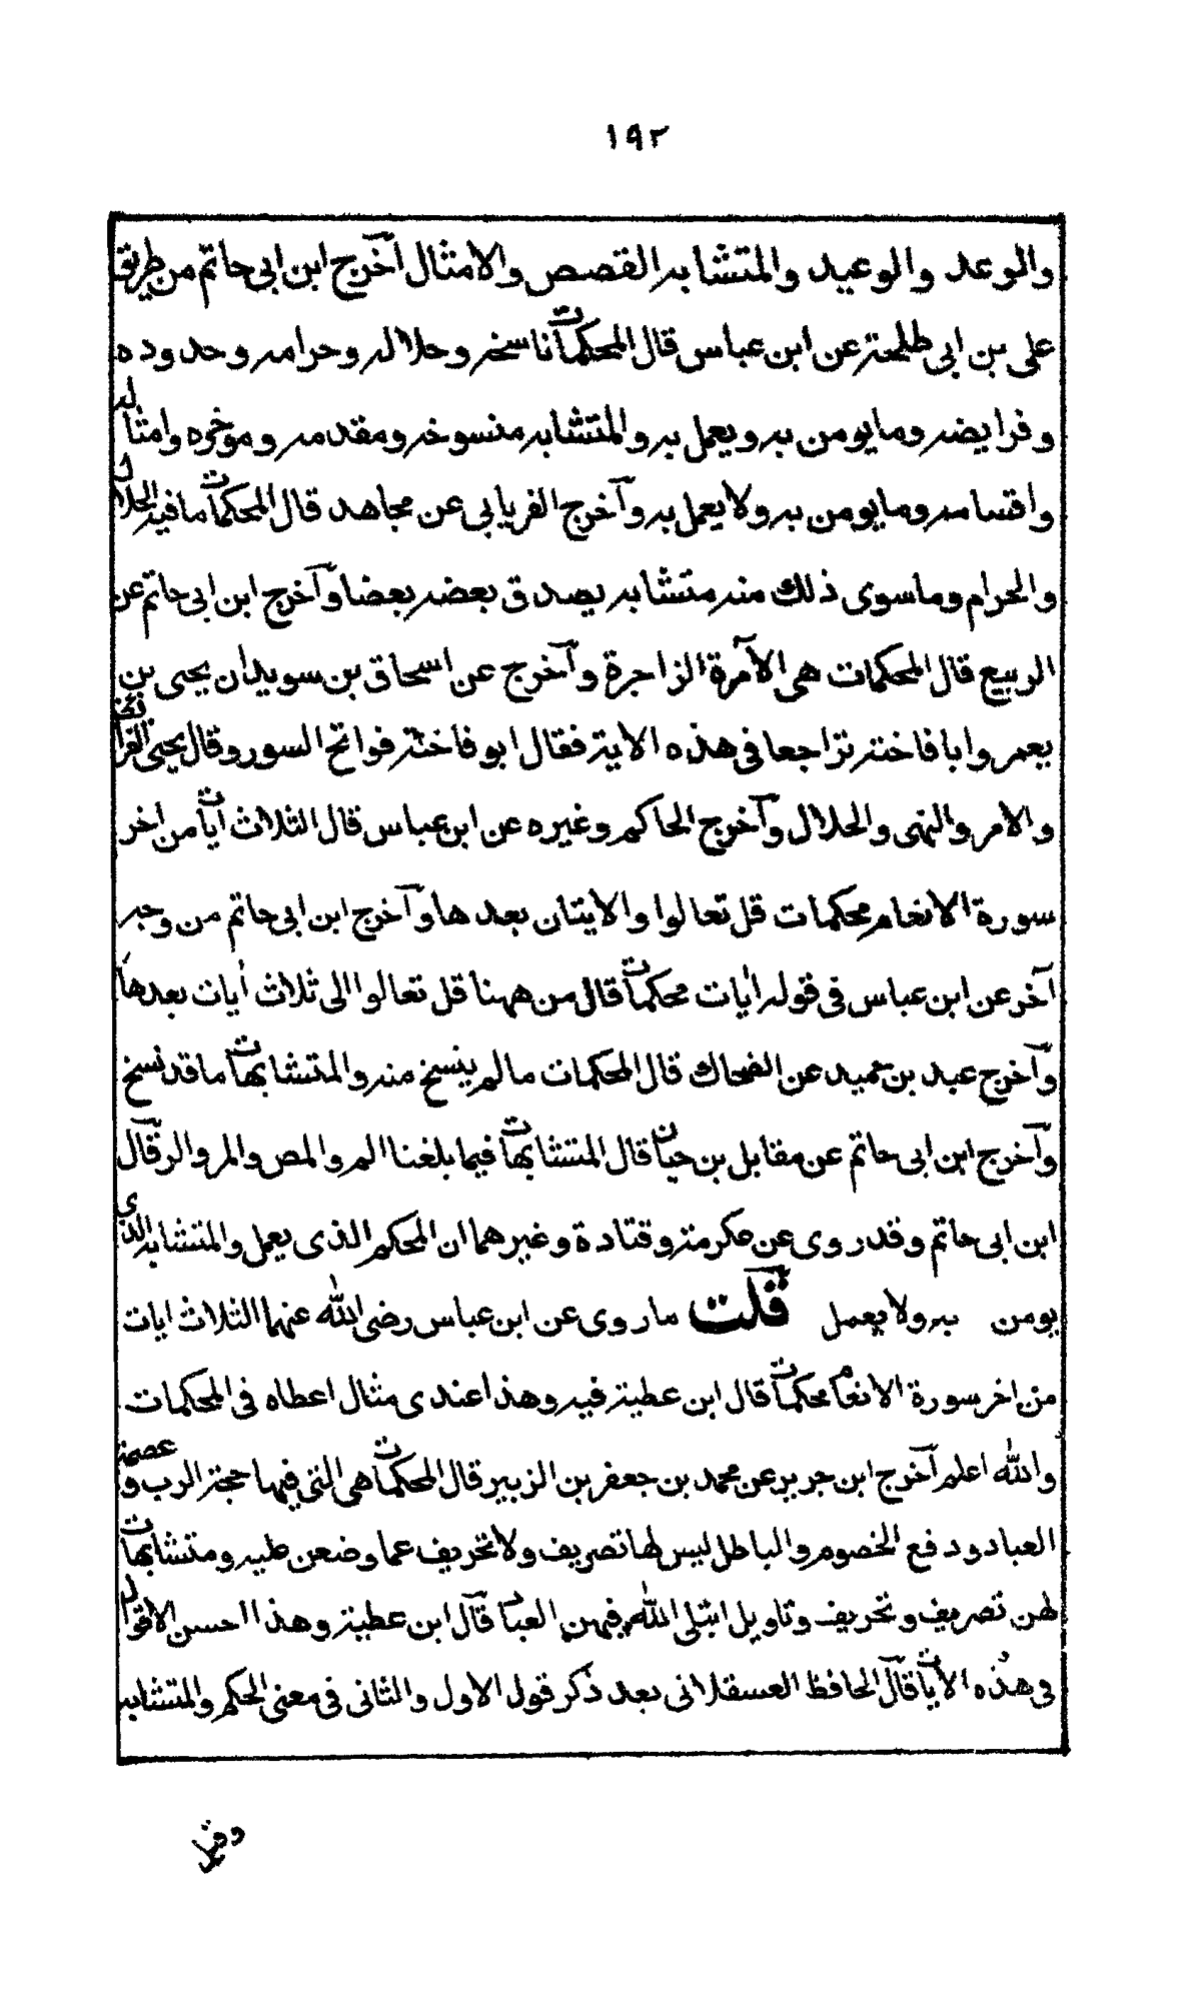 ١٩٢
والوعد والوعيد والمتشابه القصص والامثال آخرج ابن ابي حاتم من طريق
على بن ابى طلحة عن ابن عباس قال المحكمات ناسخه وحلاله وحرامه وحدوده
وفرايضه وما يومن به ويعمل به والمتشابه منسوخه ومقدمه وموخره وامثاله
واقسامه وما يومن به ولا يعمل به وآخرج الفريابى عن مجاهد قال المحكمات ما فيه الحلال
والحرام وما سوى ذلك منه متشابه يصدق بعضه بعضا وآخرج ابن ابى حاتم عن
الربيع قال المحكمات هى الآمرة الزاجرة وآخرج عن اسحاق بن سويد ان يحيى بن
يعمر وابا فاختة تراجعا فى هذه الاية فقال ابو فاختة فواتح السور وقال يحيى الفرائض
والامر والنهى والحلال وآخرج الحاكم وغيره عن ابن عباس قال الثلاث ايات من اخر
سورة الانعام محكمات قل تعالوا والايتان بعدها وآخرج ابن ابى حاتم من وجه
آخر عن ابن عباس فى قوله ايات محكمات قال من ههنا قل تعالوا الى ثلاث أيات بعدها
وآخرج عبد بن حميد عن الضحاك قال المحكمات ما لم ينسخ منه والمتشابهات ما قد نسخ
وآخرج ابن ابى حاتم عن مقابل بن حيان قال المتشابهات فيما بلغنا الم والمص والمر والر قآل
ابن ابى حاتم وقد روى عن عكرمة وقتادة وغيرهما ان المحكم الذى يعمل والمتشابه الذى
يومن به ولا يعمل قلت ما روى عن ابن عباس رضى الله عنهما الثلاث ايات
من اخر سورة الانعام محكمات قال ابن عطية فيه وهذا عندى مثال اعطاه فى المحكمات
والله اعلم آخرج ابن جرير عن محمد بن جعفر بن الزبير قال المحكمات هى التى فيها حجة الرب وعصمة
العباد ودفع الخصوم والباطل ليس لها تصريف ولا تحريف عما وضعن عليه ومتشابهات
لهن تصريف وتحريف وتاويل ابتلى الله فيهن العباد قآل ابن عطية وهذا احسن الاقوال
فى هذه الايات قآل الحافظ العسقلانى بعد ذكر قول الاول والثانى فى معنى الحكم والمتشابه
وقيل